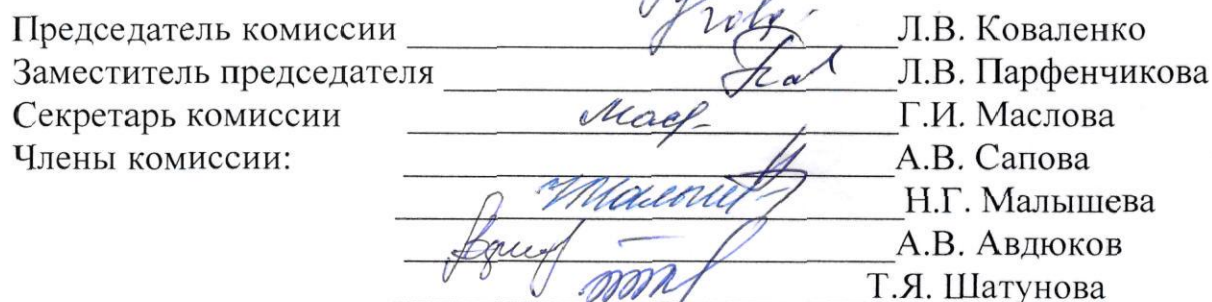 Председатель комиссии Л.В. Коваленко
Заместитель председателя Л.В. Парфенчикова
Секретарь комиссии Г.И. Маслова
Члены комиссии: А.В. Сапова
Н.Г. Малышева
А.В. Авдюков
Т.Я. Шатунова